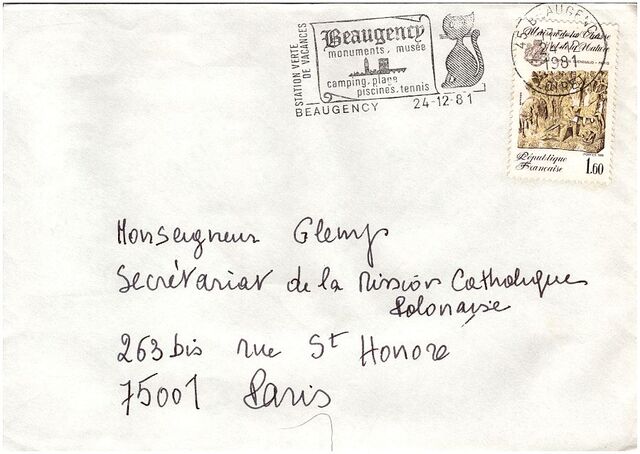 STATION VERTE
DE VACANCES
Beaugency
monuments, musée
camping, plage
piscines, tennis
BEAUGENCY 24-12-81
45 BEAUGENCY
1981
LOIRET
Maison de la Chasse
et de la Nature
République
Française
1,60
Monseigneur Glemp
Secrétariat de la Mission Catholique
Polonaise
263 bis rue St Honore
75001 Paris